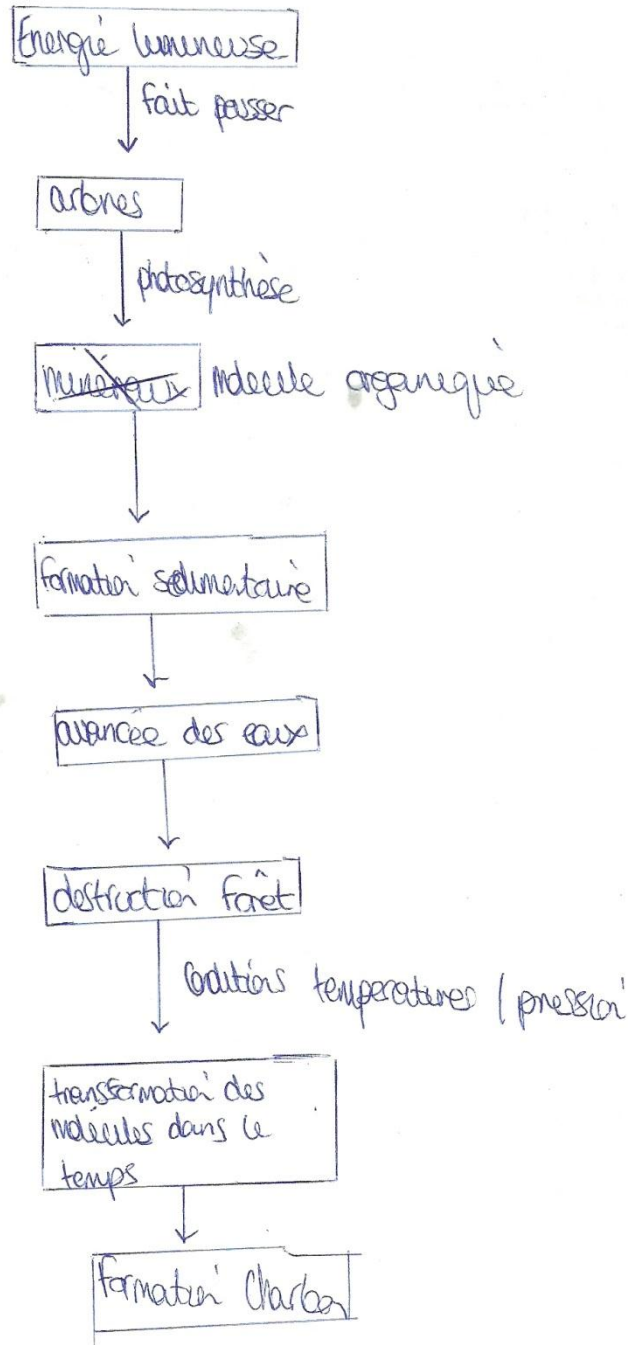 Energie lumineuse
fait passer
arbres
photosynthèse
minéraux molécule organique
formation sédimentaire
avancée des eaux
destruction forêt
Conditions temperatures / pression
transformation des
molécules dans le
temps
formation Charbon